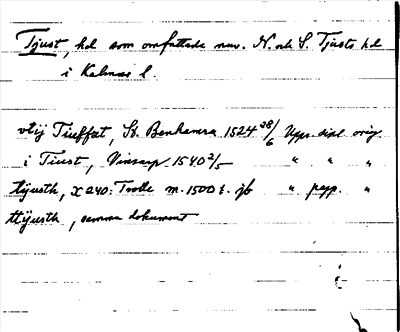 Tjust, hd som omfattade nuv. N. och S. Tjusts hd
i Kalmar l.
vtij Tiuffzt, St. Benhamra 1524 28/6 Upps. dipl orig
i Tiust, Vinsarp 1540 2/5 " " "
tijusth, X 240: Trolle m. 1500 t. jb " papp. "
ttijusth, samma dokument